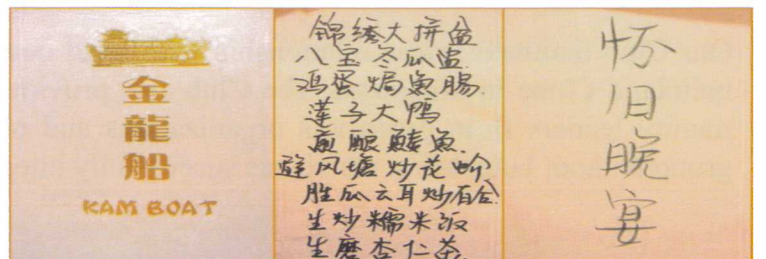 金龍船
KAM BOAT
锦绣大拼盆
八宝冬瓜盅
鸡蛋焗魚腸
莲子大鸭
煎酿鲮魚
避风塘炒花蚧
胜瓜云耳炒百合
生炒糯米饭
生磨杏仁茶
怀旧晚宴